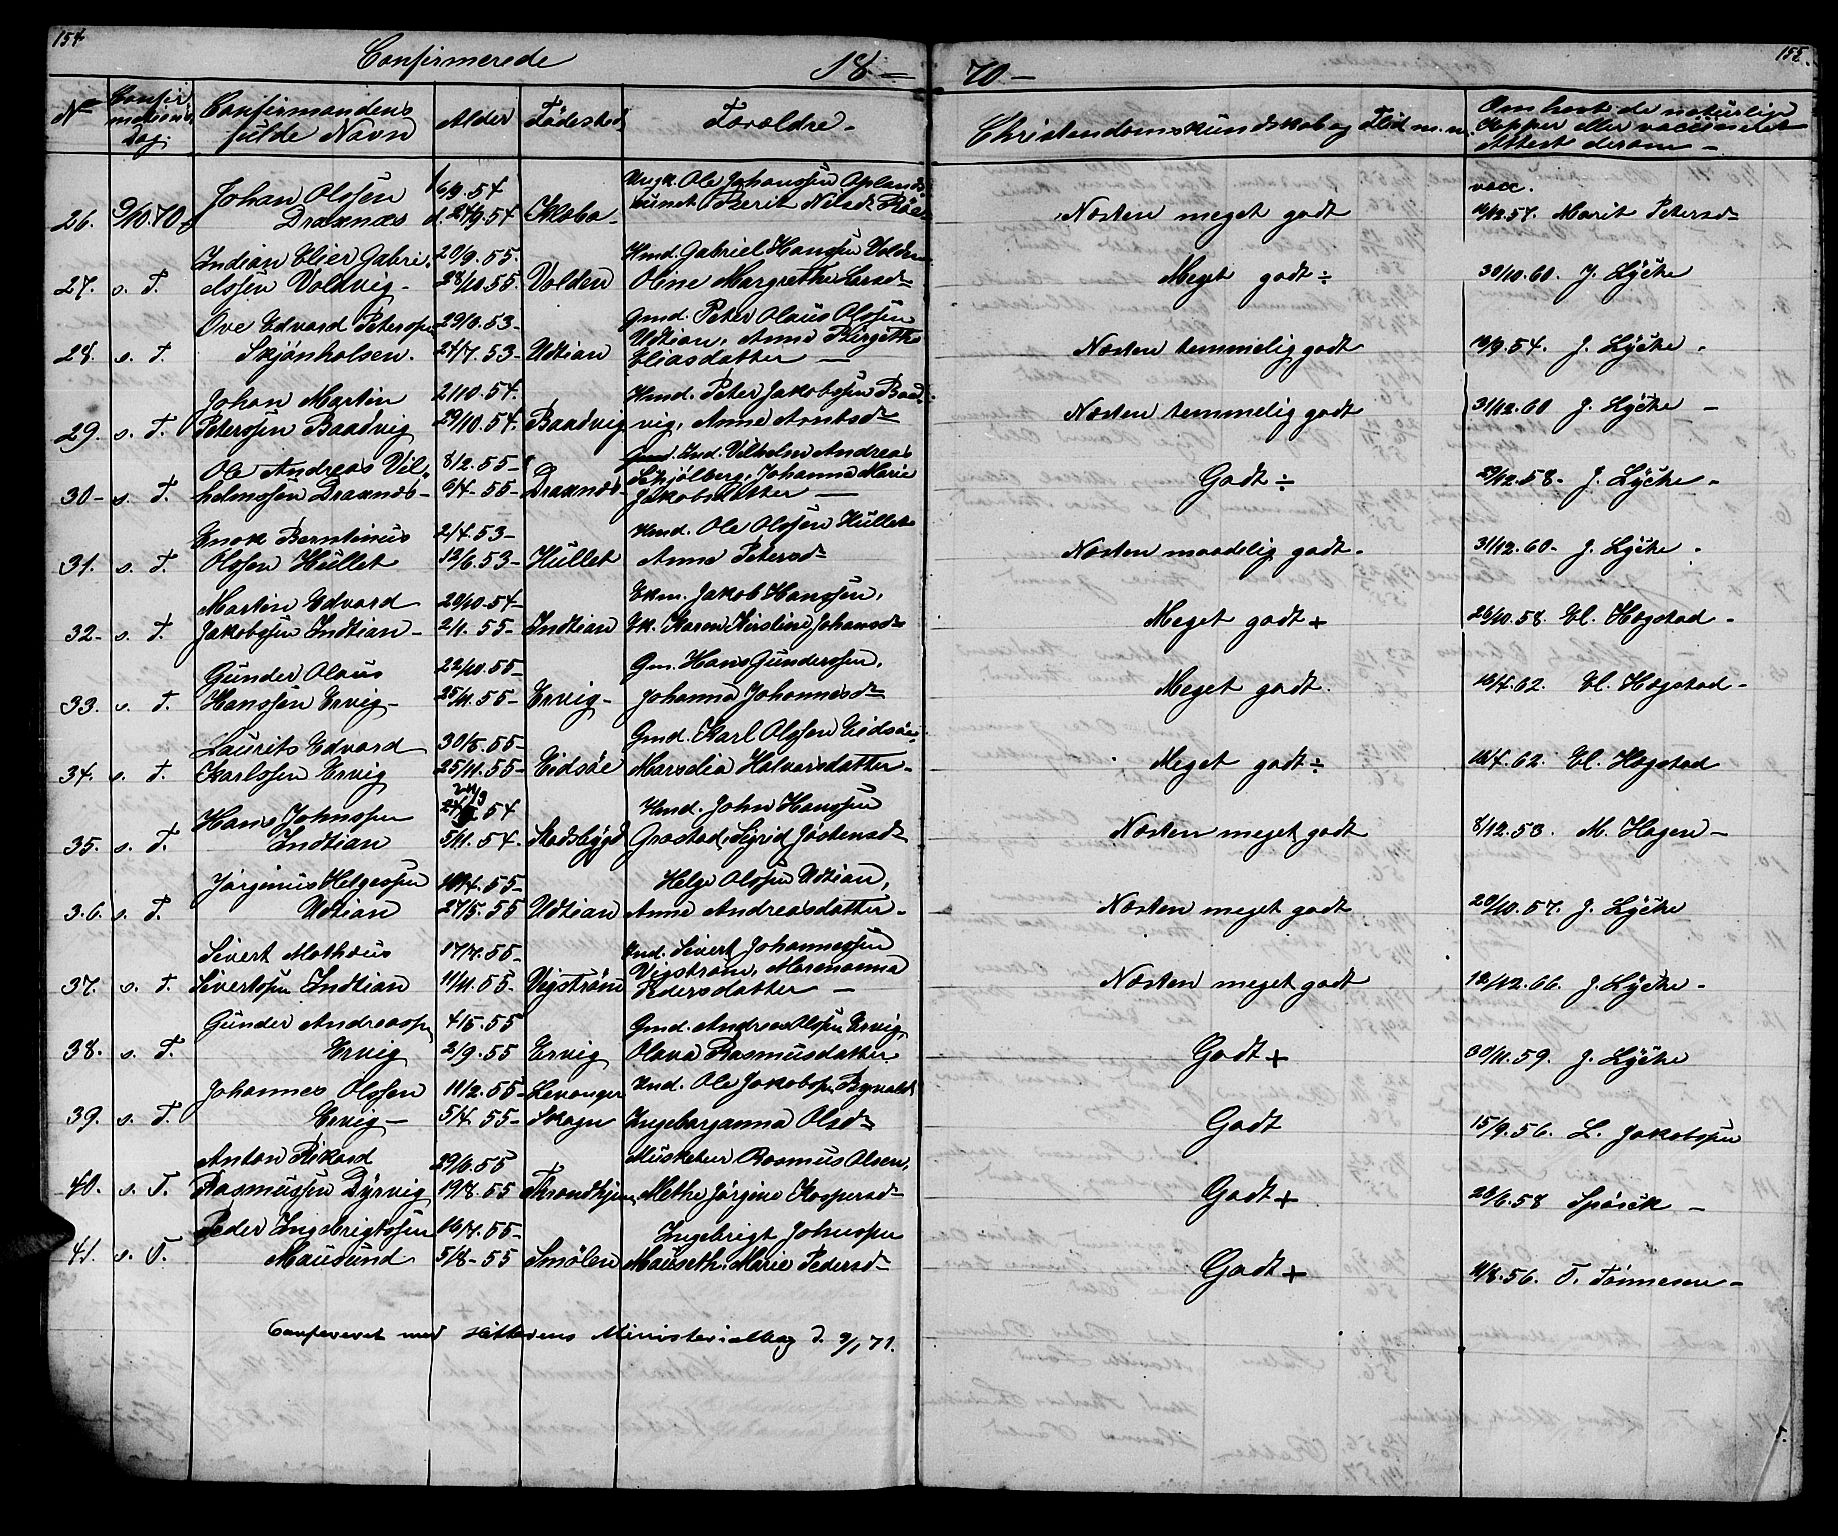 154.
155.
Confirmerede 18 = 70 -
No
Confir
mations
Dag.
Confirmandens
fulde Navn
Alder
Fødested
Forældre.
Christendomskundskab og Flid m.m.
Om havt de naturlige
Kopper eller vaccineret
Attest derom -
26. 9/10.70.
Johan Olssen
Draxnæs
6/9.54
d. 24/9.54
Ugk. Ole Johanssen
Berit Nilsd.
Næsten meget godt
vacc.
Marit Petersd.
27. s. T.
Indian Elier Gabri-
elssen Voldvig -
20/9.55.
28/10.55.
Volden
Hmd. Gabriel Hanssen Volden
Oline Margrethe Larsd.
Meget godt ÷
30/10.60. J. Lÿcke
28. s. T.
Ove Edvard Peterssen
Skjønholsen.
29/6.53 -
24/7.53 -
Udtian
Gmd. Peter Olaus Olssen
Udtian, Anne Birgitha
Eliasdatter -
Næsten temmelig godt
J. Lÿcke.
29. s. T.
Johan Martin
Peterssen Baadvig
2/10.54.
29/10.54.
Baadvig
Hmd. Peter Jakobssen Baad-
vig, Anne Arntsd.
Næsten temmelig godt
31/12.60 J. Lÿcke -
30 - s. T.
Ole Andreas Vil-
helmssen Draxnæs -
8/2.55 -
9/4 - 55 -
Draxnæs -
Ind. Vilhelm Andreas
Skjølberg, Johanna Marie
Jakobsdatter -
Godt ÷
29/12.58 - J. Lÿcke -
31. s. T.
Enok Berntinus
Olssen Hullet
2/4.53 -
12/6.53 -
Hullet
Hmd. Ole Olssen Hullet
Anne Petersd.
Næsten maadelig godt.
31/12.60 - J. Lÿcke.
32 - s. T.
Martin Edvard
Jakobssen Indtian -
20/10.54 -
2/1.55 -
Indtian
Ekm. Jakob Hanssen,
Ek. Karen Kirstine Johansd.
Meget godt +
26/10.58. El. Hogstad -
33. s. T.
Gunder Olaus
Hanssen Ervig -
22/10.55 -
25/11.55 -
Ervig -
Gm. Hans Gunderssen,
Johanna Johannesd.
Meget godt.
10/4.62. El. Hogstad -
34. s. T.
Laurits Edvard
Karlssen Ervig
30/5.55 -
25/11.55 -
Eidsøe
Gmd. Karl Olssen Eidsøe,
Marselia Halvarsdatter -
Meget godt ÷
10/4.62. El. Hogstad
35. s. T.
Hans Johnssen
Indtian
24/9 54
5/11.54.
Stadsbÿgd
Hmd. John Hanssen
Grøstad, Sigrid Jostensd.
Næsten meget godt
8/12.53. M. Hagen -
36. s. T.
Jørginus Helgessen
Udtian
27/5.55
Udtian
Helge Olssen Udtian,
Anne Andreasdatter -
Næsten meget godt
20/10.57. J. Lÿcke
37. s. T.
Sivert Mathæus
Sivertssen Indtian
17/7.55 -
11/11.55.
Vigstrøm
Ind. Sivert Johannessen
Vigstrøm, Marenanna
Pedersdatter -
Næsten meget godt
12/12.66. J. Lÿcke -
38. s. T.
Gunder Andreassen
Ervig
4/5.55
2/9.55
Ervig
Gmd. Andreas Olssen Ervig,
Olava Rasmusdatter
Godt +
30/11.59. J. Lÿcke
39. s. T.
Johannes Olssen
Ervig -
11/2.55 -
5/4.55 -
Levanger
Skogn
Ind. Ole Jakobssen
Ingeboranna Olsd.
Godt
15/9.56. L. Jakobssen
40. s. T.
Anton Rikard
Rasmussen Dÿrvig
29/6.55
19/8.55
Throndhjem
Musketeer Rasmus Olsen,
Methe Jørgine Kaspersd.
Godt +
28/6.58 Spørck -
41. s. T.
Peder Ingebrigtssen
Mausund
16/7.55 -
5/8 - 55
Smølen
Ingebrigt Johnssen
Mauseth, Marie Pedersd.
Godt +
11/8.56. T. Tønnesen -
Confereret med Hitterens Ministerialbog d. 9/1 71.